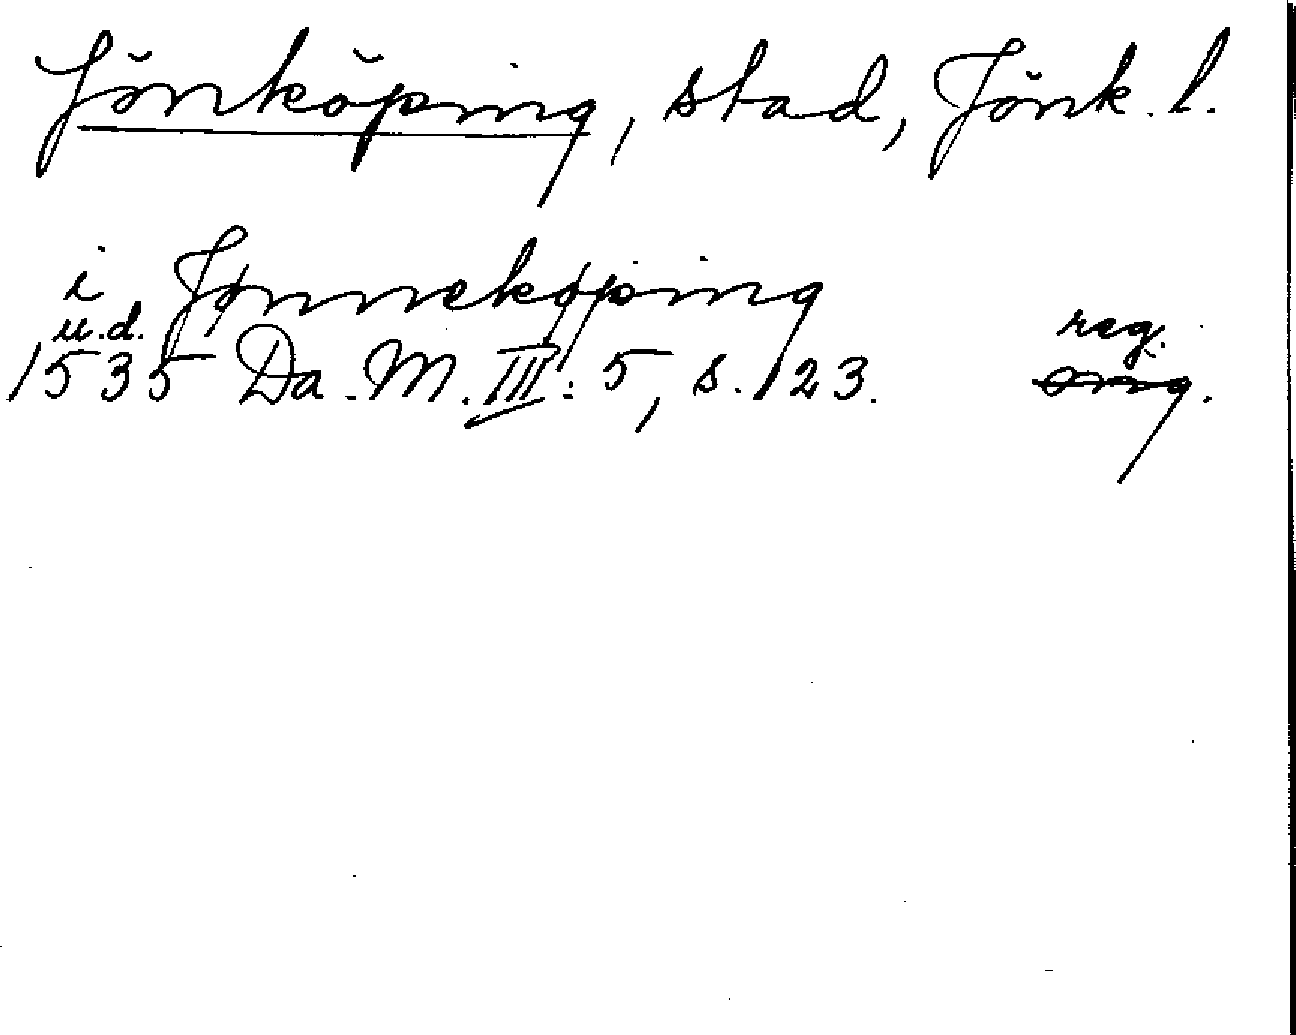 Jönköping, stad, Jönk. l.
i Jønnekøping
u.d. reg.
1535 Da. M. III: 5, s. 123. orig.